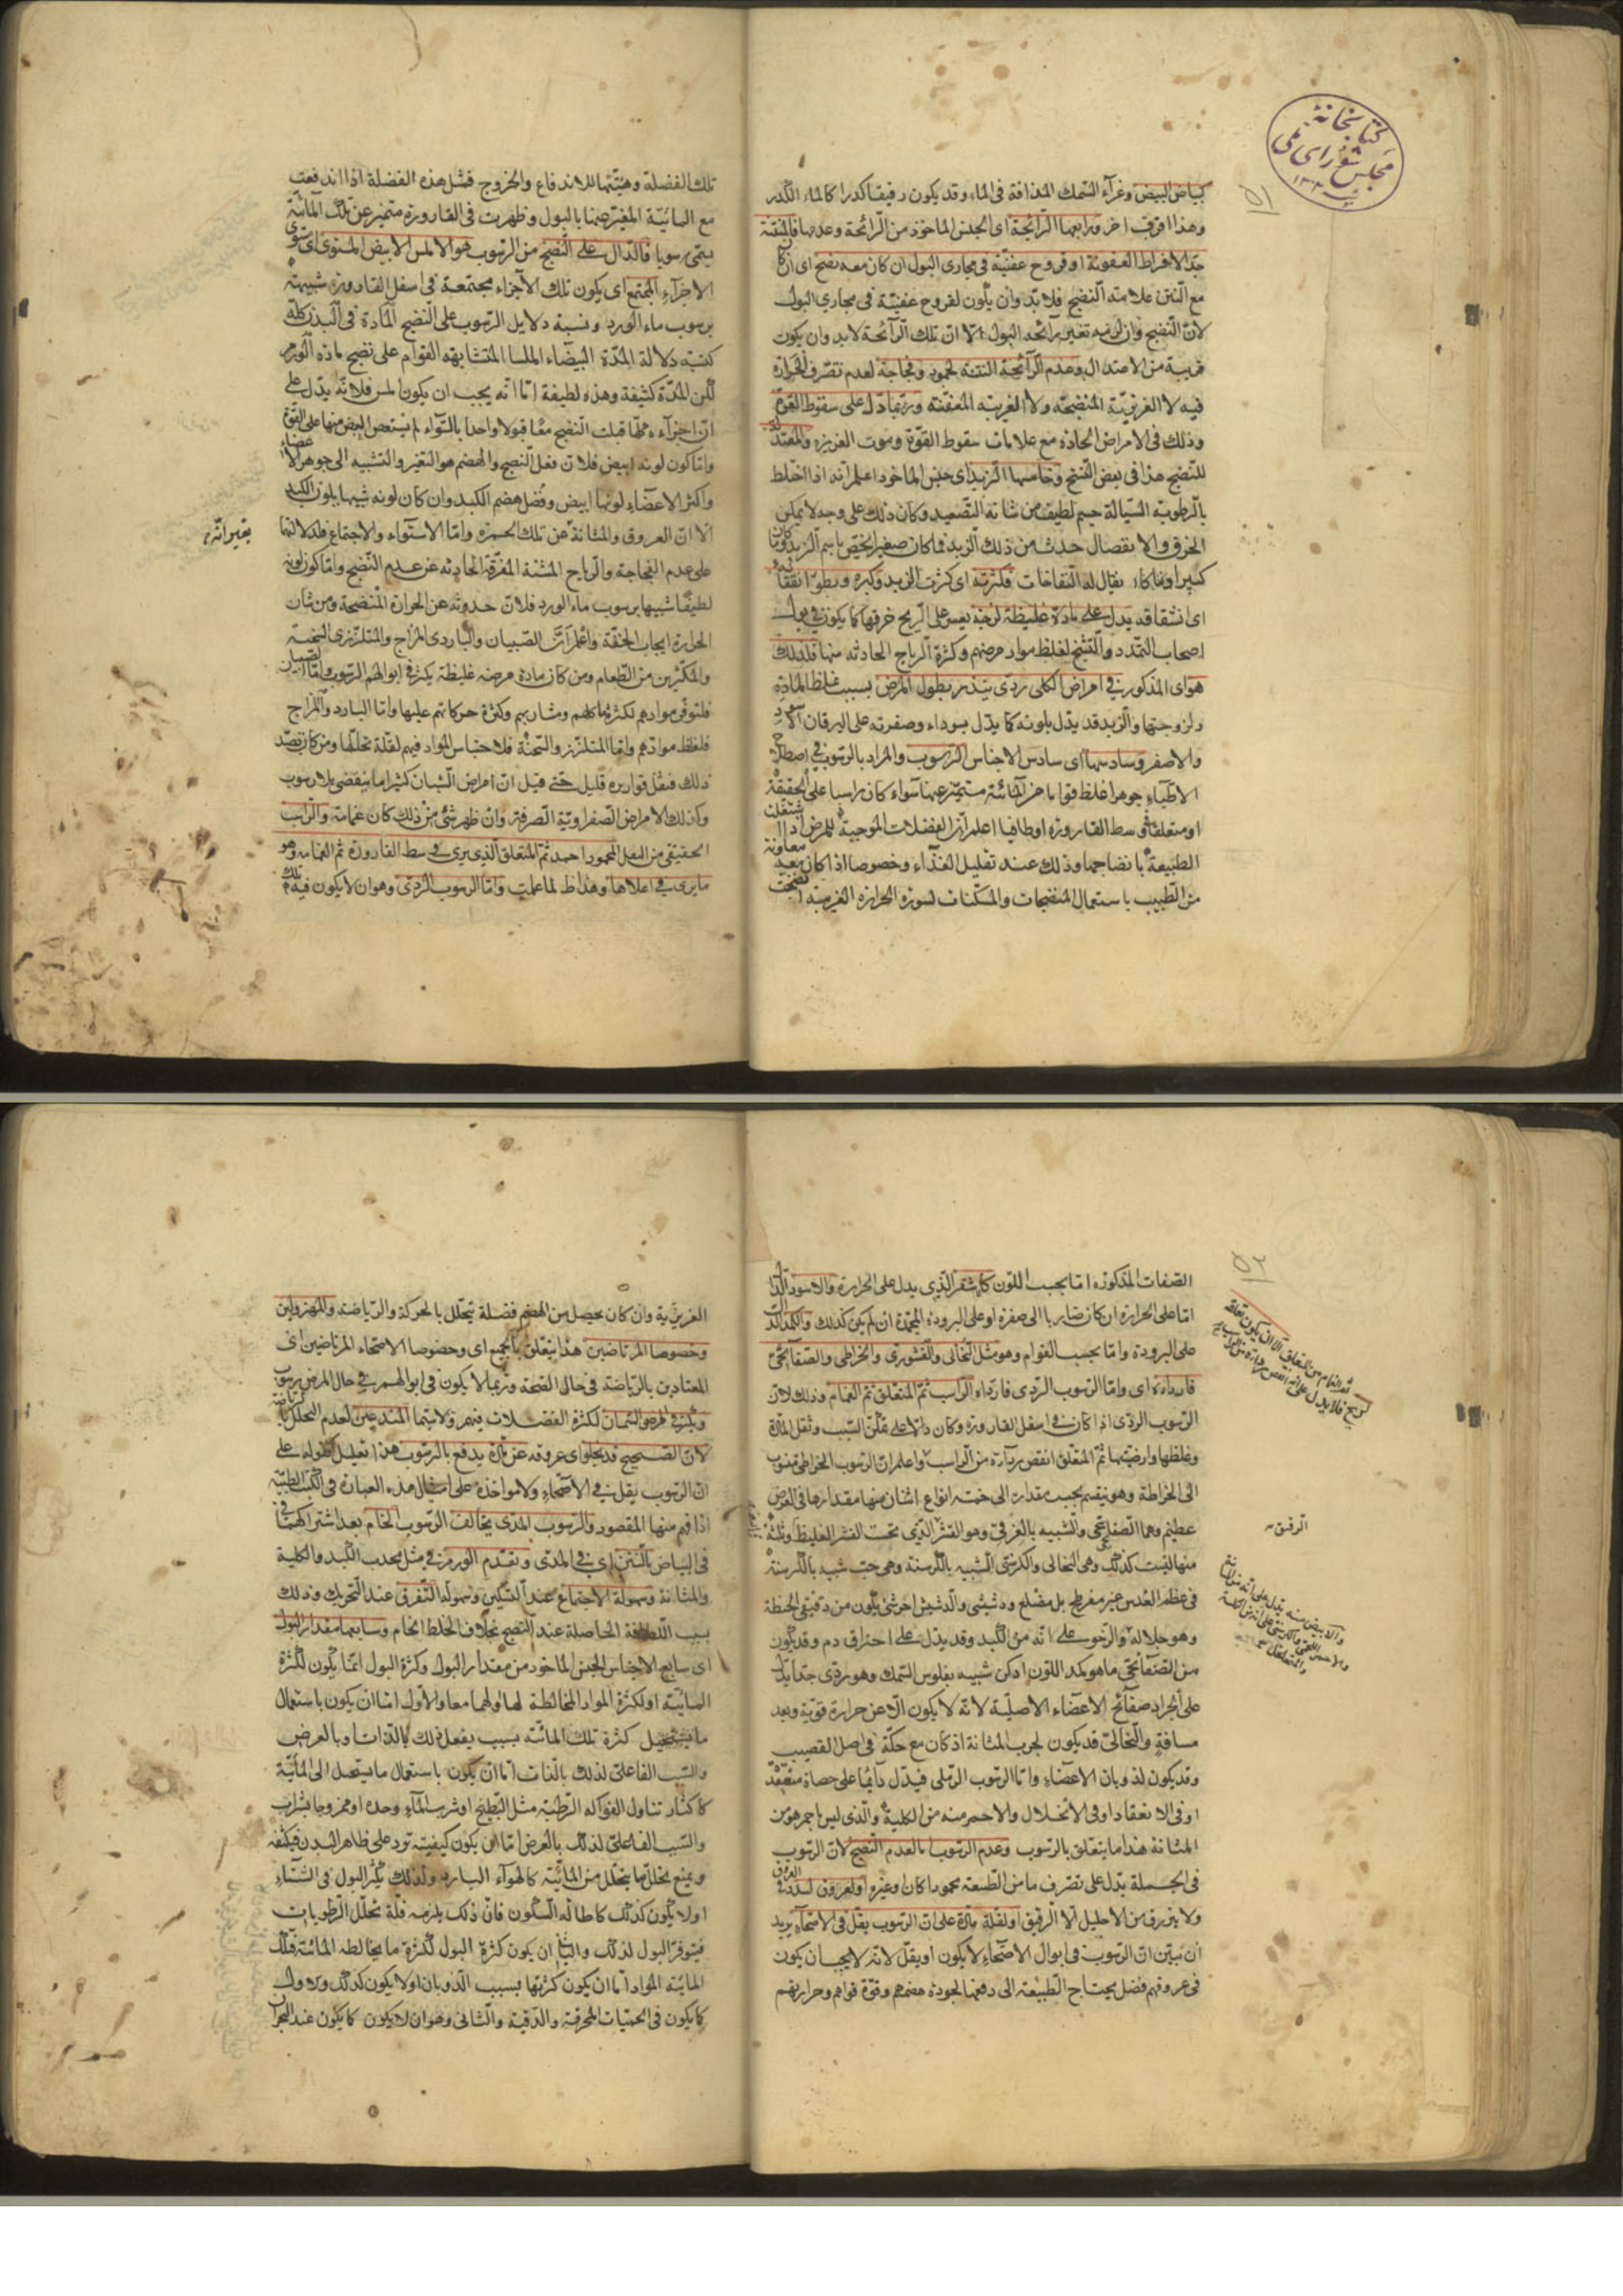 كتابخانهٔ
مجلس شورای ملی
۵۱
كبياض البيض وغرآء السّمك المذافة فى الماء وقد يكون رقيقا كدرا كالماء الكدر
وهذا فرق اخر ورابعها الرائحة اى الجنس الماخوذ من الرّائحة وعدمها فالمنتنة
جدّا لافراط العفونة او قروح عفنيّة فى مجارى البول ان كان معه نضج اى ان كان
مع النّتن علامة النّضج فلا بدّ وان يكون لقروح عفنيّة فى مجارى البول
لانّ النّضج وان لزمه تغير رائحة البول الّا انّ تلك الرّائحة لا بد وان يكون
قريبة من الاعتدال وعدم الرّائحة النتنة لجمود وفجاجة لعدم تصّرف الحرارة
فيه لا الغريزيّة المنضجة ولا الغريبة المعفّنة وربّما دلّ على سقوط القوّة
وذلك فى الامراض الحادّة مع علامات سقوط القوّة وموت الغريزة
للنّضج هذا فى بعض النّسخ وخامسها الزبد اى جنس الماخوذ اعلم انه اذا اختلط
بالرّطوبة السّيالة جسم لطيف من شانه التّصعيد وكان ذلك على وجه لا يمكن
الخرق والانفصال حدث من ذلك الزّبد فما كان صغيرا يخصّ باسم الزّبد وما كان
كبيرا يقال له النّفاخات فكثرته اى كثرت الزبد وكبره وبطؤ انفقائه
اى انشقاقه يدل على مادّة غليظة لزجة يعسر على الرّيح خرقها كما يكون فى بول
اصحاب التّمدد والتّشنّج لغلظ مواد مرضهم وكثرة الرياح الحادثة منها فلذلك
هو اى المذكور فى امراض الكلى ردى ينذر بطول المرض بسبب غلظ المادّة
ولزوجتها والزّبد قد يدّل بلونه كما يدّل بسوداء وصفرته على اليرقان الاسود
والاصفر وسادسها اى سادس الاجناس الرّسوب والمراد بالرسوب فى اصطلاح
الاطبّاء جوهر اغلظ قواما من المائيّة متميّز عنها سواء كان راسبا على الحقيقة
او متعلقا فى وسط القارورة او طافيا اعلم ان الفضلات الموجبة للمرض اذا اشتغلت
الطبيعة بانضاجها وذلك عند تقليل الغذاء وخصوصا اذا كان بعد معاونة
من الطّبيب باستعمال المنضجات والمسكّنات لسورة الحرارة الغريبة نضجت
تلك الفضلة وهيّئتها للاندفاع والخروج فمثل هذه الفضلة اذا اندفعت
مع المائيّة المغيّر عنها بالبول وظهرت فى القارورة متميّز عن تلك المائيّة
يسمّى رسوبا فالدّال على النّضج من الرّسوب هو الاملس الابيض المستوى اى مستوى
الاجزآء المجتمع اى يكون تلك الاجزاء مجتمعة فى اسفل القارورة شبيهة
برسوب ماء الورد ونسبة دلايل الرّسوب على النّضج المادة فى البدن كلّه
كنسبة دلالة المدّة البيضاء الملسا المتشابهة القوام على نضج مادة الورم
لكن المدّة كثيفة وهذه لطيفة امّا انّه يجب ان يكون املس فلانّه يدّل على
انّ اجزآءه كلّها قبلت النّضج معًا قبولا واحدا بالسّواء لم يستعص البعض منها على القوّة
وامّا كون لونه ابيض فلانّ فعل النّضج والهضم هو التغيّر والتشبيه الى جوهر الاعضاء
واكثر الاعضاء لونها ابيض وفضل هضم الكبد وان كان لونه شبيها بلون الكبد
الّا انّ العروق والمثانة عن تلك الحمرة وامّا الاستواء والاجتماع فلدلالتها
يغيرانّه
على عدم الفجاجة والرّياح المشتتة المفرّقة الحادثة عن عدم النّضج وامّا كون لونه
لطيفًا شبيها برسوب ماء الورد فلانّ حدوثه عن الحرارة المنضجة ومن شان
الحرارة ايجاب الخفّة واعلم انّ الصّبيان والباردى المزاج والمتلزّزى السّحنة
والمكثرين من الطّعام ومن كان مادة مرضه غليظة يكثر فى ابوالهم الرّسوب امّا الصّبيان
فلتوفّر موادهم لكثرة اكلهم ومشاربهم وكثرة حركاتهم عليها وامّا البارد والمزاج
فلغلظ موادّهم وامّا المتلزّز والسّحنة فلاحتباس المواد فيهم لقلة تحلّلها ومن كان بضدّ
ذلك فثفل قواريره قليل حتّى قيل انّ امراض الشّبان كثيرا ما ينقضى بلا رسوب
وكذلك الامراض الصّفراويّة الصّرفة وان ظهر شئ من ذلك كان غمامة والرّاسب
الحقيقى من الثفل المحمود احمد ثمّ المتعلق الّذى يرى فى وسط القارورة ثمّ الغمامة وهو
ما يرى فى اعلاها وهذا ظ لما علمت وامّا الرسوب الرّدى وهو ان لا يكون فيه تلك
۵۲
الصّفات المذكورة امّا بحسب اللّون كالاشقر الّذى يدل على الحرارة والاسود الدّال
امّا على الحرارة ان كان ضاربا الى صفرة او على البرودة المجمّدة ان لم يكن كذلك والكمد الدّال
على البرودة وامّا بحسب القوام وهو مثل النّخالى والقشورى والخراطى والصّفايحى
فارداه اى وامّا الرسوب الرّدى فارداه الرّاسب ثمّ المتعلّق ثم الغمام وذلك لانّ
الرّسوب الردّى اذا كان فى اسفل القارورة كان دالّا على تمكّن السّبب وثقل المادّة
وغلظها وارضيّتها ثمّ المتعلّق انقص ردآءة من الرّاسب واعلم انّ الرسوب الخراطى منسوب
الى الخراطة وهو ينقسم بحسب مقداره الى خمسة انواع اثنان منها مقدارها فى العرض
عظيم وهما الصّفايحى والشبيه بالغرقى وهو القشر الّذى تحت القشر الغليظ وثلثة
الرقيق
منها ليست كذلك وهى النخالى والكرسنّى الشّبيه بالكرسنة وهى حبّ شبيه بالكرسنة
فى عظم العدس غير مفرطح بل مضلّع ودشيشى والدّشيش اخر شئ يكون من دقيق الحنطة
وهو جلاله والرّخو على انّه من الكبد وقد يدّل على احتراق دم وقد يكون
من الصّفائحى ما هو كمد اللّون ادكن شبيه بفلوس السّمك وهو ردى جدا يدّل
على انجراد صفائح الاعضاء الاصليّة لانه لا يكون الّا عن حرارة قويّة وبعد
مسافة والنّخالى قد يكون لجرب المثانة اذ كان مع حكّة فى اصل القضيب
وقد يكون لذوبان الاعضاء وامّا الرّسوب الرّملى فيدّل دايمًا على حصاة منعقدة
او فى الانعقاد او فى الانحلال والاحمر منه من الكلية والّذى ليس باحمر هو من
المثانة هذا ما يتعلّق بالرسوب وعدم الرّسوب امّا لعدم النّضج لانّ الرّسوب
فى الجملة يدّل على تصّرف ما من الطّبيعة محمودا كان او غيره او لعروق لسدد فى العروق
ولا يبرز من الاحليل الّا الرّقيق او لقلّة مادّة على انّ الرّسوب يقل فى الاصحّآء يريد
ان يبيّن انّ الرّسوب فى ابوال الاصحّاء لا يكون او يقلّ لانه لا يجب ان يكون
فى عروقهم فضل يحتاج الطّبيعة الى دفعها لجودة هضمهم وقوّة قواهم وحرارتهم
الغريزية وان كان يحصل من الهضم فضلة تحلّل بالحركة والرّياضة والمهزولين
وخصوصا المرتاضين هذا يتعلّق بالجميع اى وخصوصا الاصحّاء المرتاضين اى
المعتادين بالرّياضة فى حال الصّحة وربّما لا يكون فى ابوالهم فى حال المرض رسوب
ويكثر فى المرضى السّمان لكثرة الفضلات فيهم ولا سيّما المتدعين لعدم التحلل بالرياضة
لانّ الصّحيح قد يخلو اى عروقه عن مادّة يدفع بالرّسوب هذا تعليل لقوله على
انّ الرّسوب يقل فى الاصحّاء ولا مواخذة على امثال هذه العبارة فى الكتب الطبيّة
اذا فهم منها المقصود والرّسوب المدّى يخالف الرّسوب الخام بعد اشتراكهما
فى البياض بالنّتن اى فى المدّى وتقدّم الورم فى مثل محدب الكبد والكلية
والمثانة وسهولة الاجتماع عند التسكين وسهولة التفرّق عند التّحريك وذلك
بسبب اللّطافة الحاصلة عند النّضج بخلاف الخلط الخام وسابعها مقدار البول
اى سابع الاجناس الجنس الماخوذ من مقدار البول وكثرة البول امّا يكون لكثرة
المائيّة او لكثرة المواد المخالطة لها او لهما معا والاول امّا ان يكون باستعمال
كثرة تلك المائيّة بسبب يفعل ذلك بالذّات او بالعرض
والسّبب الفاعلى لذلك بالذّات امّا ان يكون باستعمال ما يستحيل الى المائيّة
كاكثار تناول الفواكه الرّطبة مثل البّطيخ او شرب المآء وحده او ممزوجا بشراب
والسّبب الفاعلى لذلك بالعرض امّا ان يكون كيفيّته ترد على ظاهر البدن فيكثّفه
ويمنع تحلّل ما يتحلّل من المائيّة كالهوآء البارد ولذلك يكثر البول فى الشّتاء
او لا يكون كذلك كاطالة السّكون فانّ ذلك يلزمه قلّة تحلّل الرّطوبات
فيتوفّر البول لذلك والثانى ان يكون كثرة البول لكثرة ما يخالطه المائيّة فتلك
المائيّة المواد امّا ان يكون كثرتها بسبب الذّوبان او لا يكون كذلك والاول
كما يكون فى الحميّات المحرقة والدّقية والثّانى وهو ان لا يكون كما يكون عند البحران